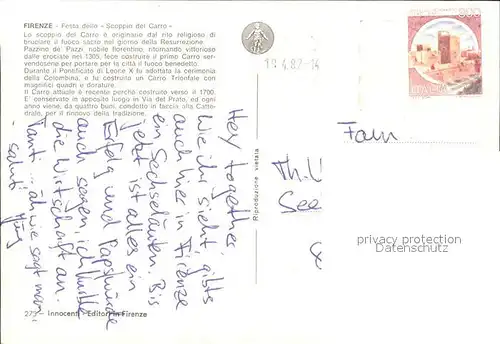 FIRENZE - Festa dello «Scoppio del Carro»
Lo scoppio del Carro è originario dal rito religioso di
bruciare il fuoco sacro nel giorno della Resurrezione
Pazzino de' Pazzi, nobile fiorentino, ritornando vittorioso
dalle crociate nel 1305, fece costruire il primo Carro ser-
vendosene per portare per la città il fuoco benedetto.
Durante il Pontificato di Leone X fu adottata la cerimonia
della Colombina, e fu costruito un Carro Trionfale con
magnifici quadri e dorature.
Il Carro attuale è recente perchè costruito verso il 1700.
E' conservato in apposito luogo in Via del Prato, ed ogni
anno viene, da quattro buoi, condotto in faccia alla Catte-
drale, per il rinnovo della tradizione.
Hey together,
Wie ihr sieht, gibts
auch hier in Firenze
ein Sechseläuten. Bis
jetzt ist alles ein
Erfolg und Papstwürde
auch sagen, ich kurble
die Wirtschaft an.
Tant... äh wie sagt man
saluti
Jürg
273 - Innocenti - Editori in Firenze
Riproduzione vietata
4.82-14
300
Fam
Th.
See
privacy protection
Datenschutz